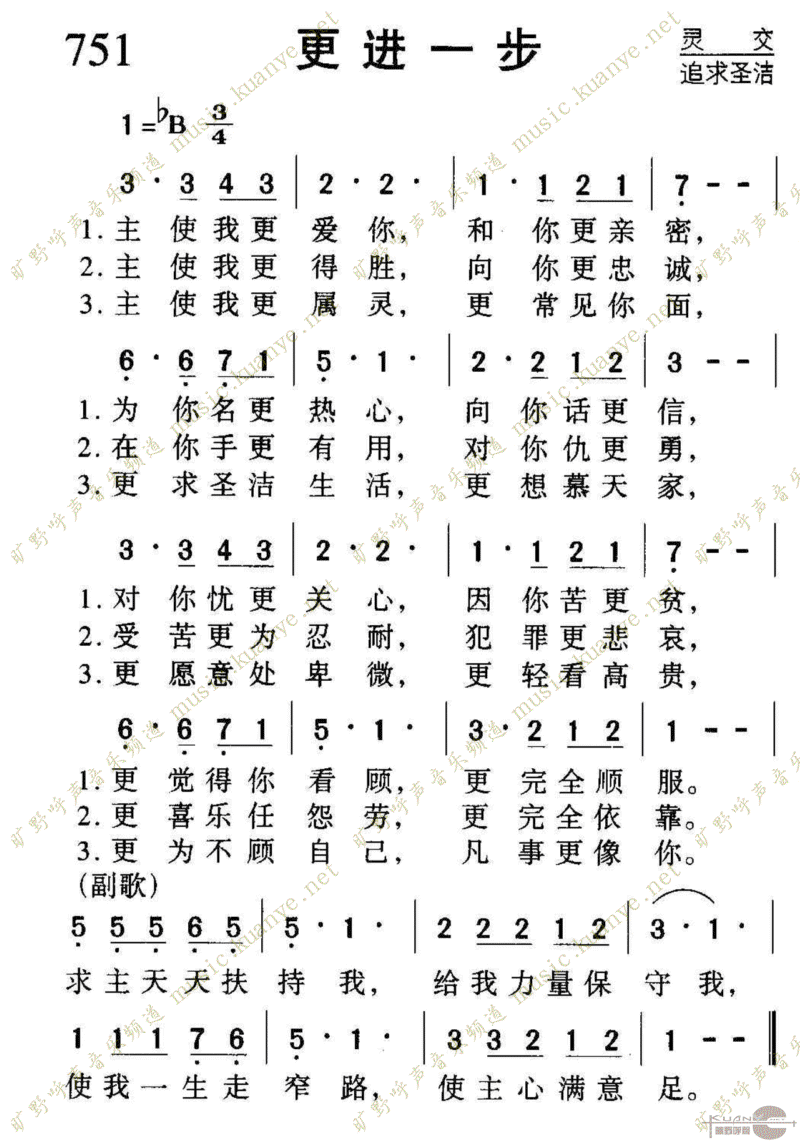 751 更进一步 灵交
追求圣洁
1=♭B 3/4
3 · 3 4 3 | 2 · 2 · | 1 · 1 2 1 | 7 - - |
1.主使我更爱你，和你更亲密，
2.主使我更得胜，向你更忠诚，
3.主使我更属灵，更常见你面，
6 · 6 7 1 | 5 · 1 · | 2 · 2 1 2 | 3 - - |
1.为你名更热心，向你话更信，
2.在你手更有用，对你仇更勇，
3.更求圣洁生活，更想慕天家，
3 · 3 4 3 | 2 · 2 · | 1 · 1 2 1 | 7 - - |
1.对你忧更关心，因你苦更贫，
2.受苦更为忍耐，犯罪更悲哀，
3.更愿意处卑微，更轻看高贵，
6 · 6 7 1 | 5 · 1 · | 3 · 2 1 2 | 1 - - |
1.更觉得你看顾，更完全顺服。
2.更喜乐任怨劳，更完全依靠。
3.更为不顾自己，凡事更像你。
(副歌)
5 5 5 6 5 | 5 · 1 · | 2 2 2 1 2 | 3 · 1 · |
求主天天扶持我，给我力量保守我，
1 1 1 7 6 | 5 · 1 · | 3 3 2 1 2 | 1 - - ‖
使我一生走窄路，使主心满意足。
旷野呼声音乐频道 music.kuanye.net
KUANYE
旷野呼声